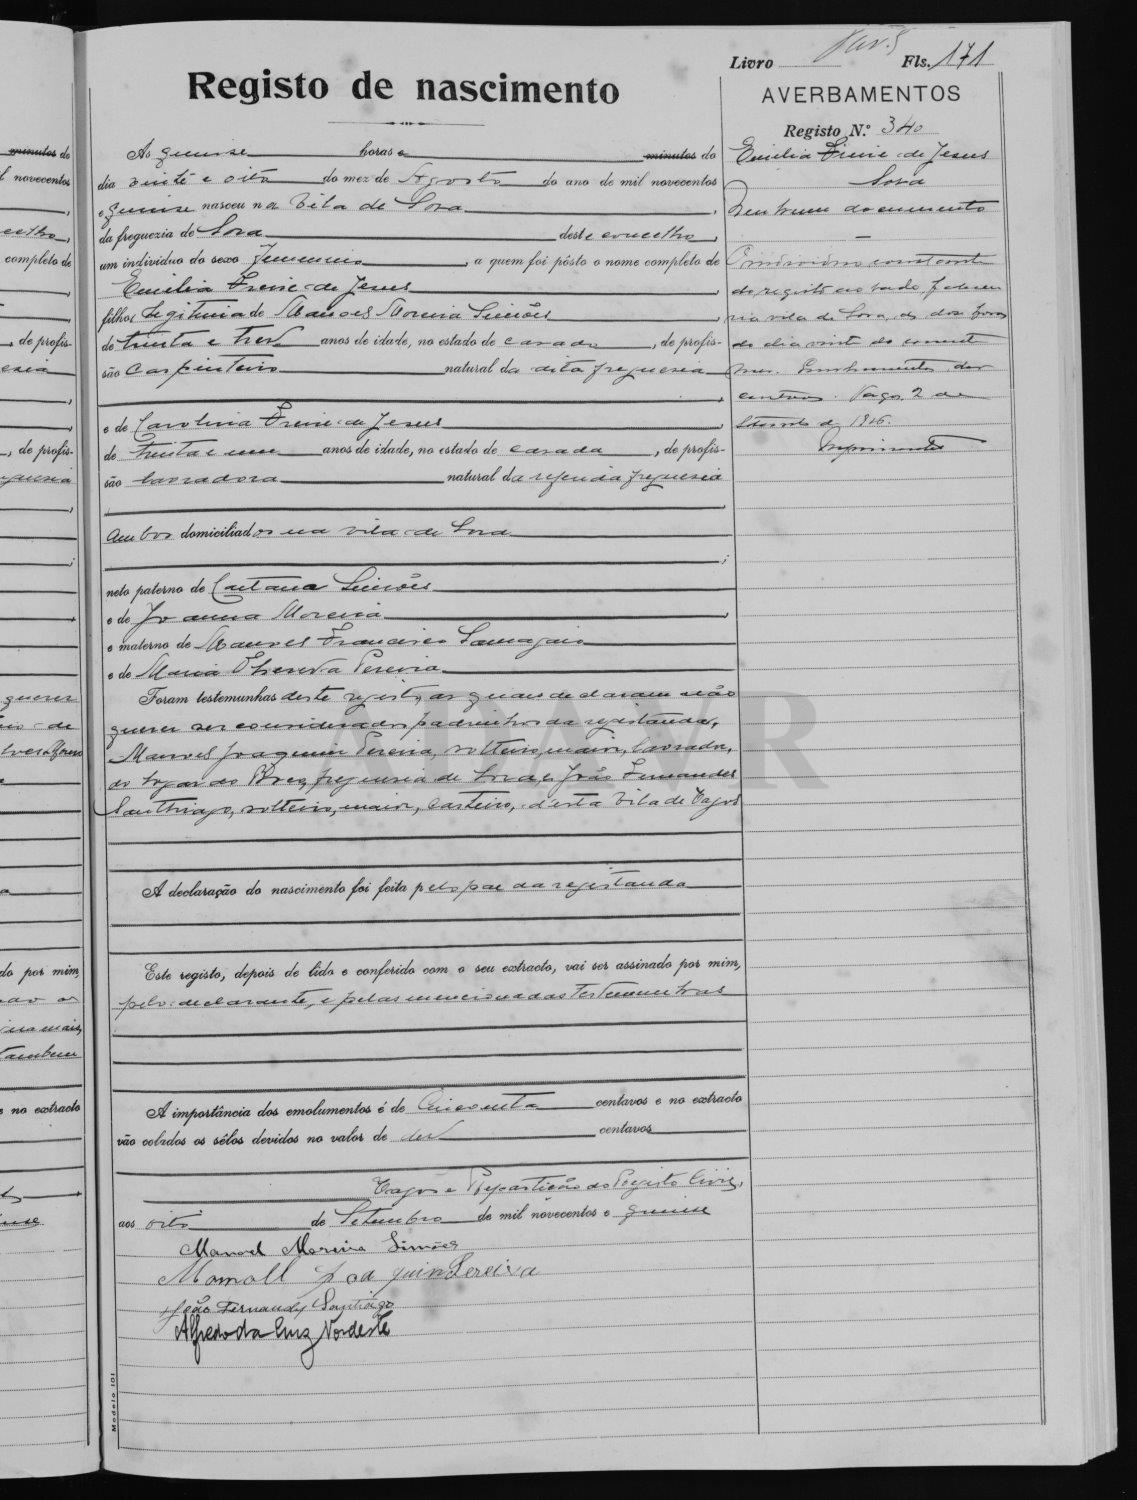 Livro Fls. 171
Registo de nascimento
AVERBAMENTOS
Registo N.º 340
Ás quinse horas e minutos do
dia vinte e oito do mez de Agosto do ano de mil novecentos
e quinse nasceu na Vila de Sosa,
da freguezia de Sosa deste concelho,
um individuo do sexo femenino, a quem foi pôsto o nome completo de
Emilia Freire de Jesus,
filha legitima de Manoel Moreira Simões,
de trinta e tres anos de idade, no estado de casado, de profis-
são carpinteiro natural da dita freguesia
e de Carolina Freire de Jesus,
de trinta e um anos de idade, no estado de casada, de profis-
são lavradora natural da referida freguesia
ambos domiciliados na vila de Sosa
;
neto paterno de Caetano Simões
e de Joanna Moreira,
e materno de Manoel Francisco Samagaio
e de Maria Thereza Pereira
Foram testemunhas deste registo, as quaes declaram não
querer ser considerados padrinhos da registanda,
Manoel Joaquim Pereira, solteiro, maior, lavrador,
do logar do Boco, freguesia de Sosa, e João Fernandes
Santhiago, solteiro, maior, carteiro, d'esta Vila de Vagos
A declaração do nascimento foi feita pelo pae da registanda
Este registo, depois de lido e conferido com o seu extracto, vai ser assinado por mim,
pelo declarante, e pelas mencionadas testemunhas
A importância dos emolumentos é de Cincoenta centavos e no extracto
vão colados os sêlos devidos no valor de dez centavos
Vagos e Repartição do Registo Civil,
aos oito de Setembro de mil novecentos e quinse
Manoel Moreira Simões
Manoel Joaquim Pereira
João Fernandes Santhiago
Alfredo da Cruz Nordeste
Modelo 101
Emilia Freire de Jesus
Sosa
Nenhum documento
O individuo constante
do registo ao lado, faleceu
na vila de Sosa, ás dose horas
do dia vinte do corrente
mez. Emolumentos dez
centavos. Vagos, 2 de
de 1916.